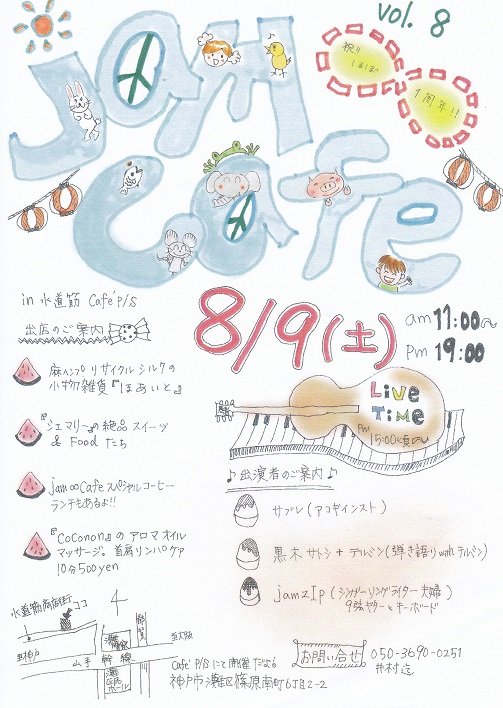 vol. 8
Jam
Cafe
祝!!
ほぼ
1周年!!
in 水道筋 Cafe' P/S
出店のご案内
8/9(土)
am 11:00~
Pm 19:00
麻ヘンプ リサイクル シルクの
小物雑貨『ほあいと』
『シェマリー』の絶品スイーツ
& Food たち
jam∞Cafe スペシャルコーヒー
ランチもあるよ!!
『Coconon』の アロマ オイル
マッサージ。首肩リンパケア
10分500yen
Live
Time
Pm
15:00頃~
♪出演者のご案内♪
サブレ(アコギインスト)
黒木サトシ + テルミン(弾き語り with テルミン)
jam2Ip (シンガーソングライター夫婦)
9弦ギターとキーボード
水道筋商店街
ココ
至神戸
山手幹線
至大阪
灘区民ホール
Cafe' P/S にて開催だよ
神戸市灘区篠原南町6丁目2-2
お問い合せ
050-3690-0251
井村迄